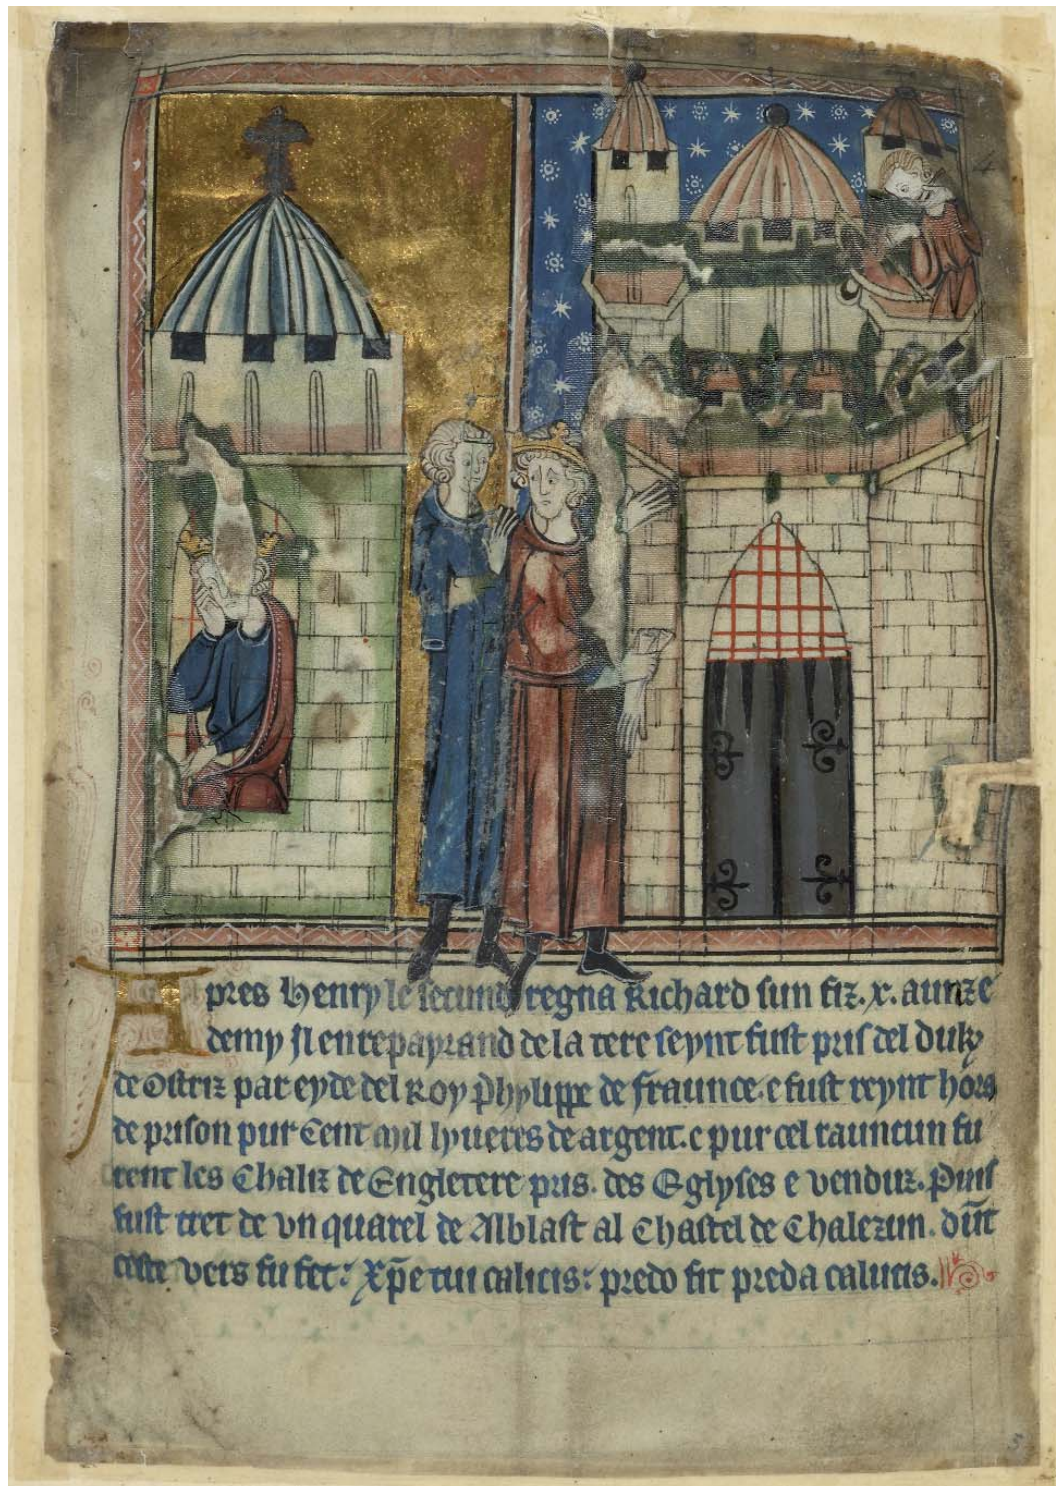 Apres Henry le secund regna Richard sun fiz .x. aunz e
demy Il en repayrand de la tere seynt fust pris del duk
de Ostriz par eyde del Roy Phylippe de fraunce. e fust reynt hors
de prison pur Cent mil lyueres de argent. e pur cel rauncun fu
rent les Chaliz de Engletere pris. des Eglyses e venduz. Puis
fust tret de vn quarel de Alblast al Chastel de Chalezun. dunt
ceste vers fu fet: Xp̄e tui calicis: predo fit preda calucis.
4
5